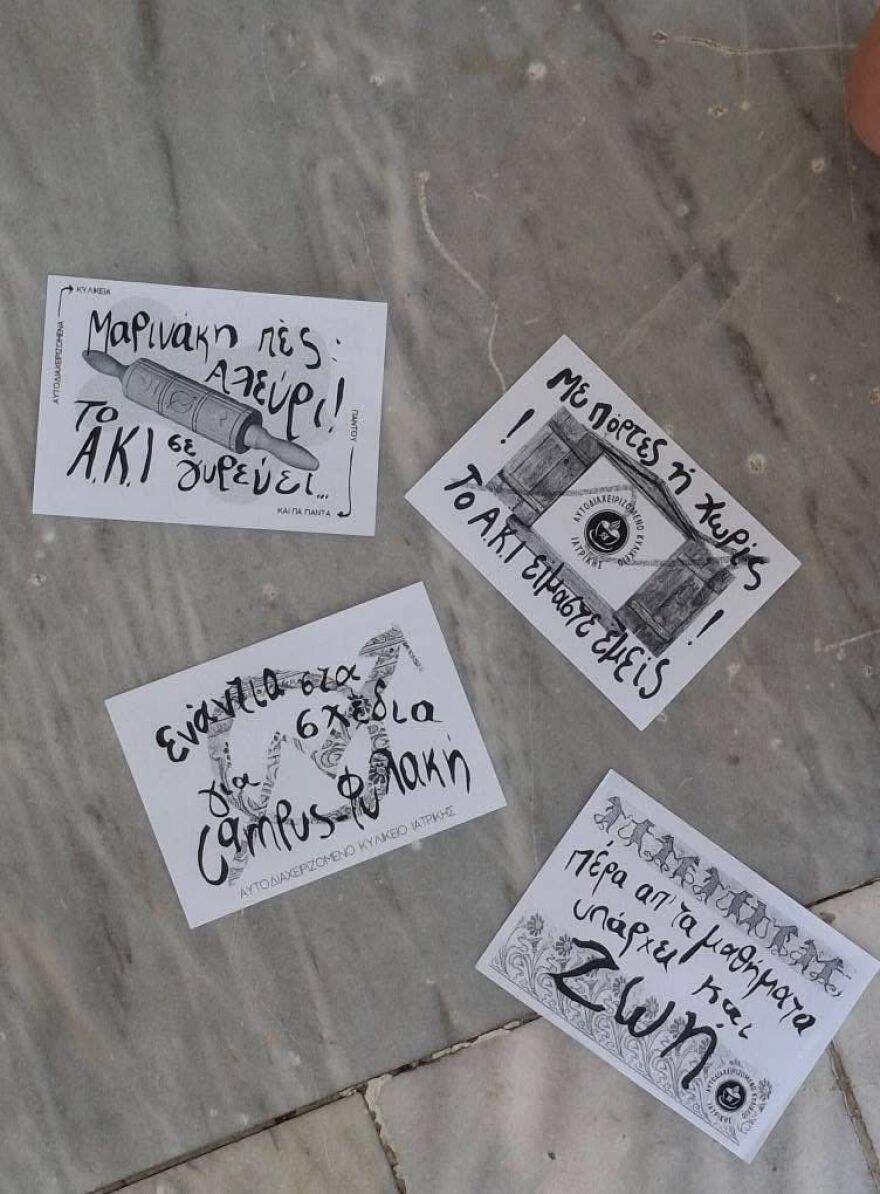 ΚΥΛΙΚΕΙΑ
ΑΥΤΟΔΙΑΧΕΙΡΙΖΟΜΕΝΑ
Μαρινάκη πὲς:
Αλεύρι!
Το
Α.Κ.Ι σε
γυρεύει...
ΠΑΝΤΟΥ
ΚΑΙ ΓΙΑ ΠΑΝΤΑ
Με πόρτες ή χωρίς
!
ΑΥΤΟΔΙΑΧΕΙΡΙΖΟΜΕΝΟ ΚΥΛΙΚΕΙΟ
ΙΑΤΡΙΚΗΣ
Το Α.Κ.Ι είμαστε εμείς
!
Ενάντια στα
σχέδια
για
Campus-Φυλακή
ΑΥΤΟΔΙΑΧΕΙΡΙΖΟΜΕΝΟ ΚΥΛΙΚΕΙΟ ΙΑΤΡΙΚΗΣ
πέρα απ' τα μαθήματα
υπάρχει και
Ζωή
ΑΥΤΟΔΙΑΧΕΙΡΙΖΟΜΕΝΟ ΚΥΛΙΚΕΙΟ
ΙΑΤΡΙΚΗΣ